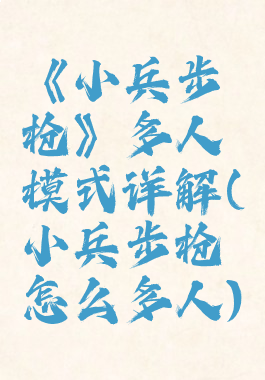 《小兵步
枪》多人
模式详解(
小兵步枪
怎么多人)